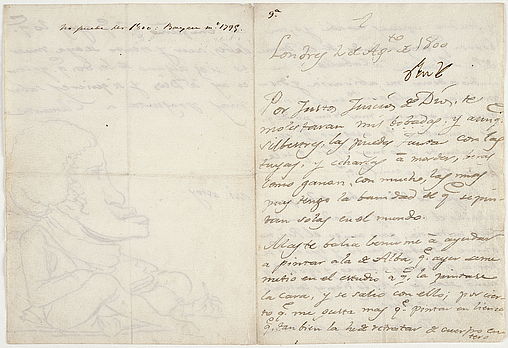 No puede ser 1800: Bayeu m.º 1795.
2
Londres 2 de Ag.to de 1800
Por Justos Juicios de Dios, te
molestaran mis bobadas, y aunq.e
silbestres, las puedes juntar con las
tuyas, y echarlas á morder, beras
como ganan, con mucho, las mias
pues tengo la banidad de q.e se pin
tan solas en el mundo.
Mas te balia benir me á ayudar
a pintar a la de Alba, q.e ayer se me
metio en el estudio a q.e la pintase
la cara, y se salio con ello; por cier
to q.e me gusta mas q.e pintar en lienzo
q.e tanbien la he de retratar de cuerpo en
tero